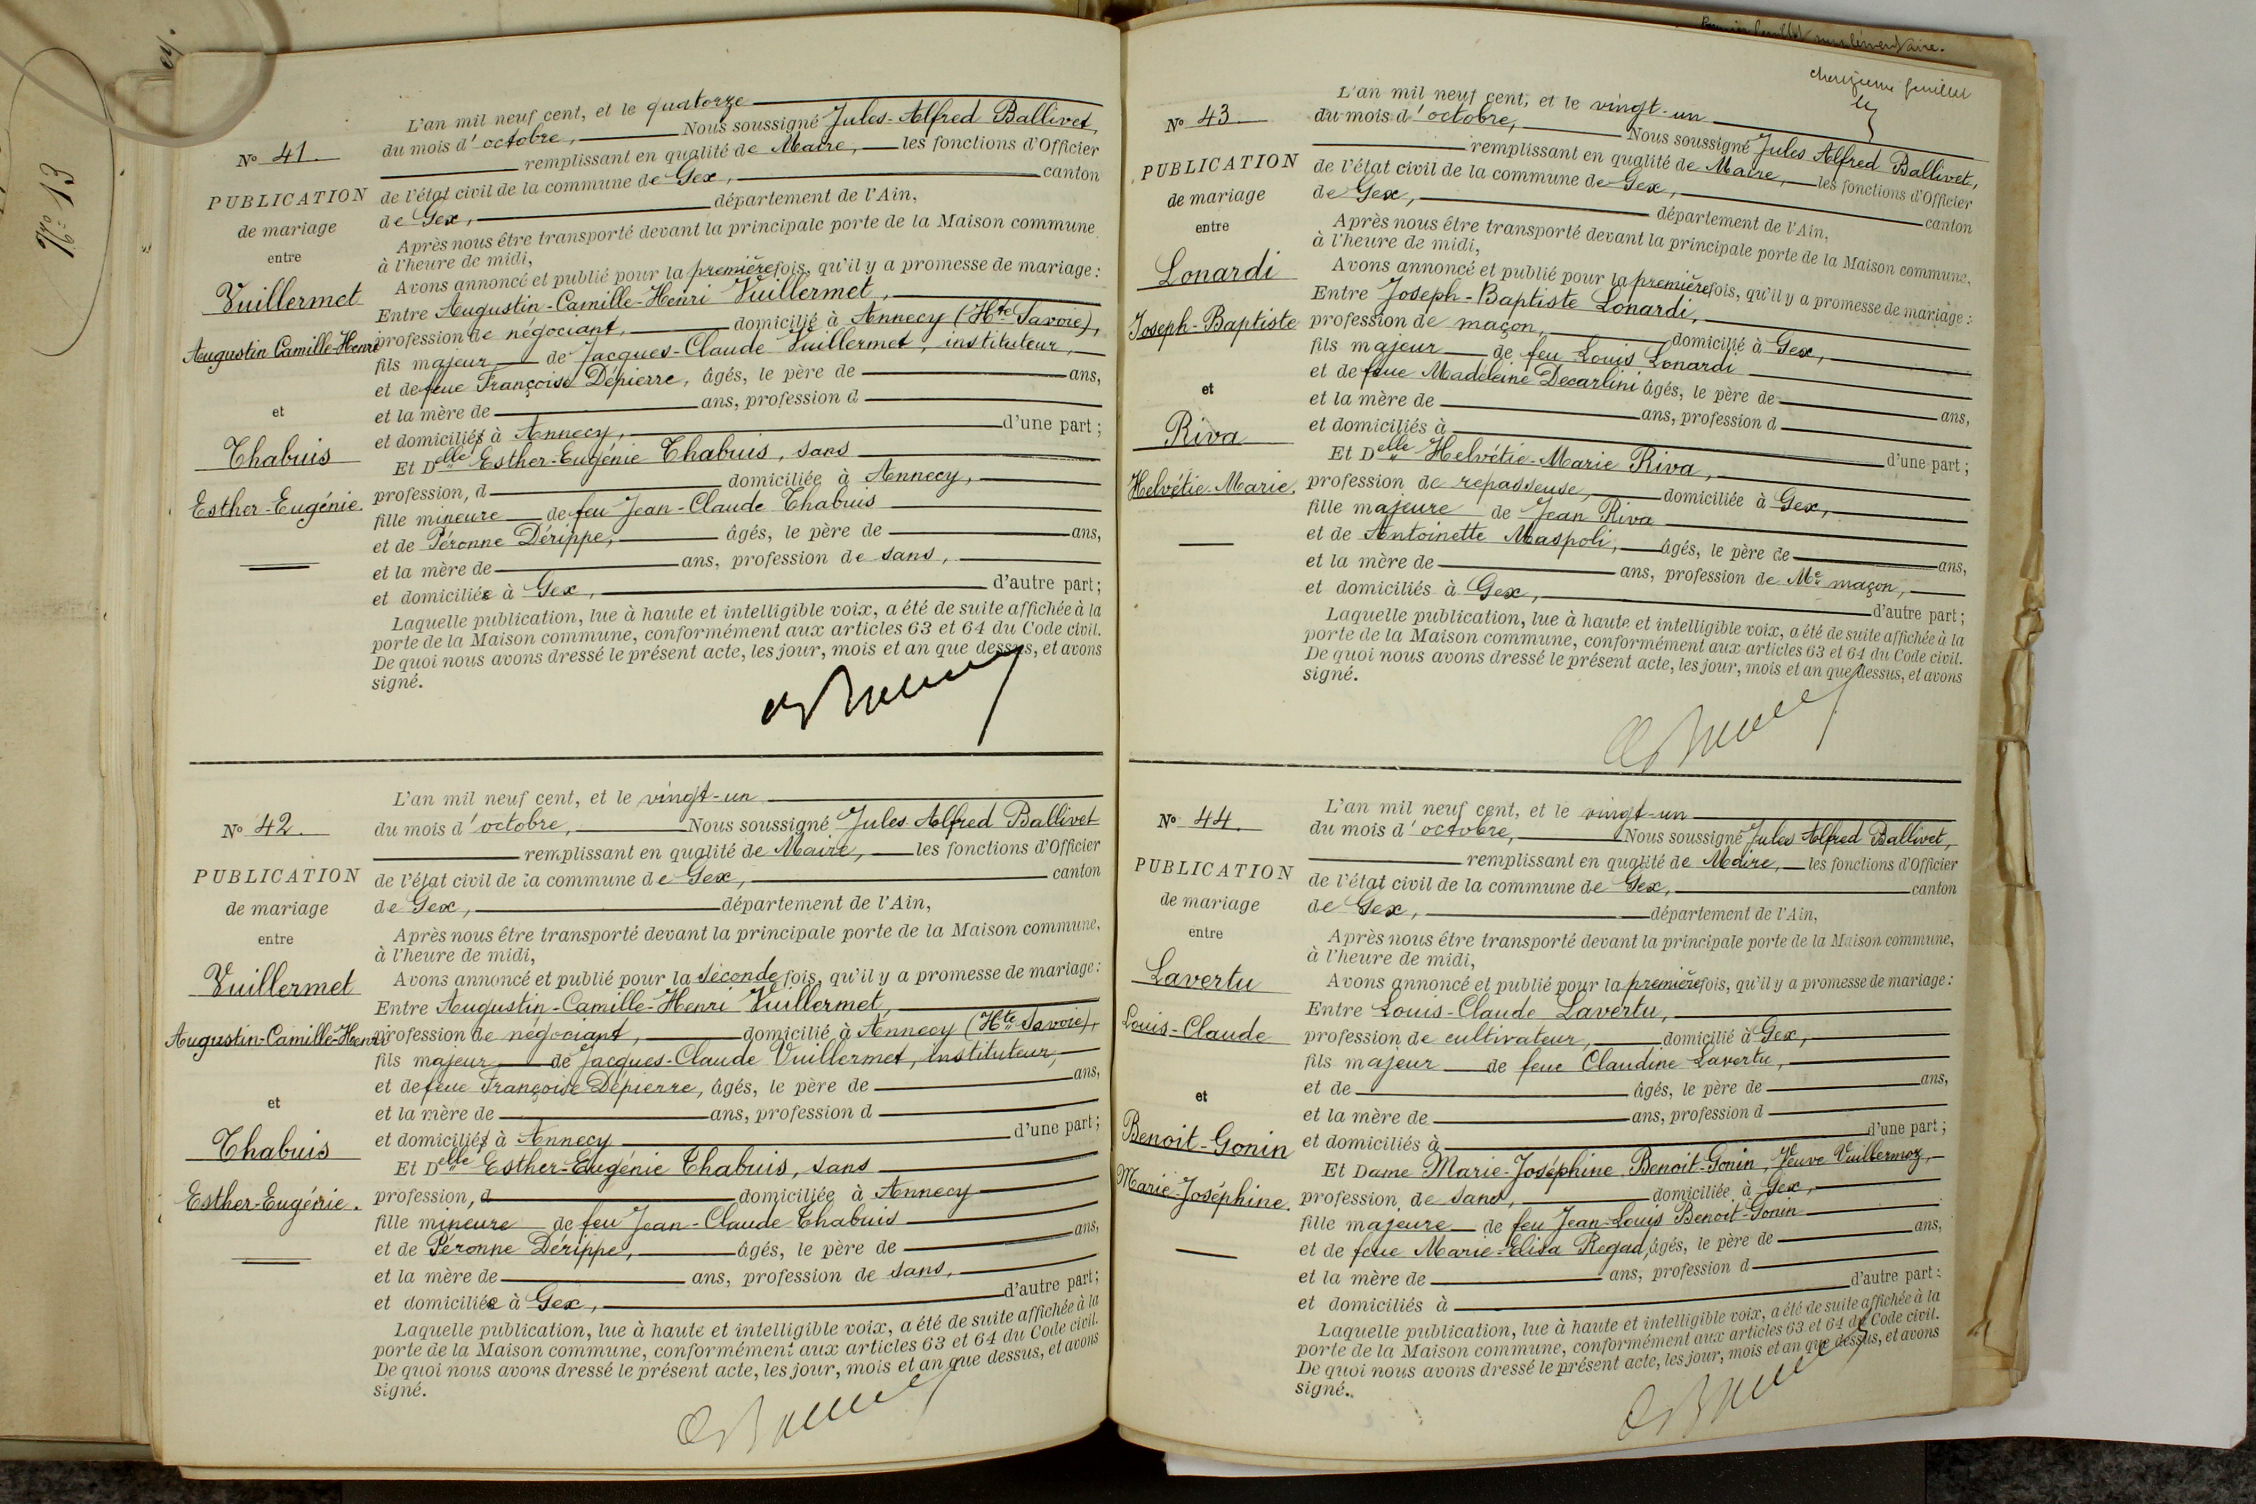 No 13
No 41.
PUBLICATION
de mariage
entre
Vuillermet
Augustin Camille-Henri
et
Thabuis
Esther-Eugénie.
L'an mil neuf cent, et le quatorze
du mois d'octobre, Nous soussigné Jules-Alfred Ballivet,
remplissant en qualité de Maire, les fonctions d'Officier
de l'état civil de la commune de Gex, canton
de Gex, département de l'Ain,
Après nous être transporté devant la principale porte de la Maison commune
à l'heure de midi,
Avons annoncé et publié pour la première fois, qu'il y a promesse de mariage:
Entre Augustin-Camille-Henri Vuillermet,
profession de négociant, domicilié à Annecy (Hte Savoie),
fils majeur de Jacques-Claude Vuillermet, instituteur,
et de feue Françoise Dépierre, âgés, le père de ans,
et la mère de ans, profession d
et domiciliés à Annecy, d'une part;
Et Delle Esther-Eugénie Thabuis, sans
profession, d domiciliée à Annecy,
fille mineure de feu Jean-Claude Thabuis
et de Péronne Dérippe, âgés, le père de ans,
et la mère de ans, profession de sans,
et domiciliée à Gex, d'autre part;
Laquelle publication, lue à haute et intelligible voix, a été de suite affichée à la
porte de la Maison commune, conformément aux articles 63 et 64 du Code civil.
De quoi nous avons dressé le présent acte, les jour, mois et an que dessus, et avons
signé.
No 42.
PUBLICATION
de mariage
entre
Vuillermet
Augustin-Camille-Henri
et
Thabuis
Esther-Eugénie.
L'an mil neuf cent, et le vingt-un
du mois d'octobre, Nous soussigné Jules Alfred Ballivet
remplissant en qualité de Maire, les fonctions d'Officier
de l'état civil de la commune de Gex, canton
de Gex, département de l'Ain,
Après nous être transporté devant la principale porte de la Maison commune,
à l'heure de midi,
Avons annoncé et publié pour la seconde fois, qu'il y a promesse de mariage:
Entre Augustin-Camille-Henri Vuillermet,
profession de négociant, domicilié à Annecy (Hte Savoie),
fils majeur de Jacques-Claude Vuillermet, instituteur,
et de feue Françoise Dépierre, âgés, le père de ans,
et la mère de ans, profession d
et domiciliés à Annecy d'une part;
Et Delle Esther-Eugénie Thabuis, sans
profession, d domiciliée à Annecy
fille mineure de feu Jean-Claude Thabuis
et de Péronne Dérippe, âgés, le père de ans,
et la mère de ans, profession de sans,
et domiciliée à Gex, d'autre part;
Laquelle publication, lue à haute et intelligible voix, a été de suite affichée à la
porte de la Maison commune, conformément aux articles 63 et 64 du Code civil.
De quoi nous avons dressé le présent acte, les jour, mois et an que dessus, et avons
signé.
feuillet supplémentaire.
feuillet
No 43
PUBLICATION
de mariage
entre
Lonardi
Joseph-Baptiste
et
Riva
Helvétie-Marie.
L'an mil neuf cent, et le vingt-un
du mois d'octobre, Nous soussigné Jules Alfred Ballivet,
remplissant en qualité de Maire, les fonctions d'Officier
de l'état civil de la commune de Gex, canton
de Gex, département de l'Ain,
Après nous être transporté devant la principale porte de la Maison commune,
à l'heure de midi,
Avons annoncé et publié pour la première fois, qu'il y a promesse de mariage:
Entre Joseph-Baptiste Lonardi,
profession de maçon, domicilié à Gex,
fils majeur de feu Louis Lonardi
et de feue Madeleine Decarlini âgés, le père de ans,
et la mère de ans, profession d
et domiciliés à d'une part;
Et Delle Helvétie-Marie Riva,
profession de repasseuse, domiciliée à Gex,
fille majeure de Jean Riva
et de Antoinette Maspoli, âgés, le père de ans,
et la mère de ans, profession de Me maçon,
et domiciliés à Gex, d'autre part;
Laquelle publication, lue à haute et intelligible voix, a été de suite affichée à la
porte de la Maison commune, conformément aux articles 63 et 64 du Code civil.
De quoi nous avons dressé le présent acte, les jour, mois et an que dessus, et avons
signé.
No 44.
PUBLICATION
de mariage
entre
Lavertu
Louis-Claude
et
Benoit-Gonin
Marie-Joséphine.
L'an mil neuf cent, et le vingt-un
du mois d'octobre, Nous soussigné Jules Alfred Ballivet,
remplissant en qualité de Maire, les fonctions d'Officier
de l'état civil de la commune de Gex, canton
de Gex, département de l'Ain,
Après nous être transporté devant la principale porte de la Maison commune,
à l'heure de midi,
Avons annoncé et publié pour la première fois, qu'il y a promesse de mariage:
Entre Louis-Claude Lavertu,
profession de cultivateur, domicilié à Gex,
fils majeur de feue Claudine Lavertu,
et de âgés, le père de ans,
et la mère de ans, profession d
et domiciliés à d'une part;
Et Dame Marie-Joséphine Benoit-Gonin, Veuve Vuillermoz,
profession de sans, domiciliée à Gex,
fille majeure de feu Jean-Louis Benoit-Gonin
et de feue Marie-Elisa Regad, âgés, le père de ans,
et la mère de ans, profession d
et domiciliés à d'autre part;
Laquelle publication, lue à haute et intelligible voix, a été de suite affichée à la
porte de la Maison commune, conformément aux articles 63 et 64 du Code civil.
De quoi nous avons dressé le présent acte, les jour, mois et an que dessus, et avons
signé.